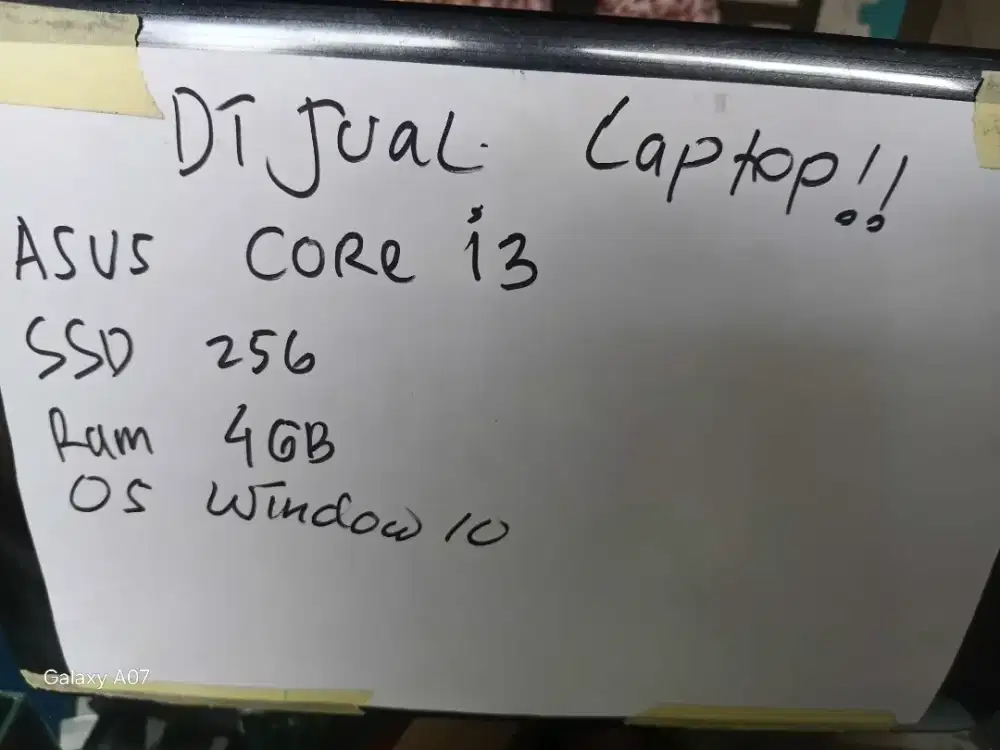 DIJUAL. Laptop!!
ASUS CORe i3
SSD 256
Ram 4GB
OS Window 10
Galaxy A07